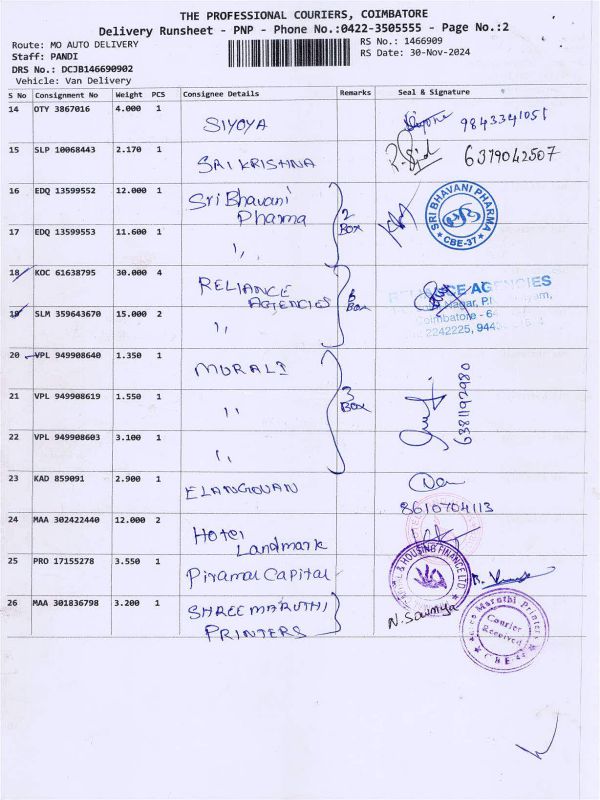 THE PROFESSIONAL COURIERS, COIMBATORE
Delivery Runsheet - PNP - Phone No.:0422-3505555 - Page No.:2
Route: MO AUTO DELIVERY
RS No.: 1466909
Staff: PANDI
RS Date: 30-Nov-2024
DRS No.: DCJB146690902
Vehicle: Van Delivery
S No Consignment No Weight PCS Consignee Details Remarks Seal & Signature
14 OTY 3867016 4.000 1 SIYOYA 9843341051
15 SLP 10068443 2.170 1 SRI KRISHNA 6379042507
16 EDQ 13599552 12.000 1 Sri Bhavani Pharma 2 Box SRI BHAVANI PHARMA CBE-37
17 EDQ 13599553 11.600 1 ,,
18 KOC 61638795 30.000 4 RELIANCE AGENCIES 6 Box AGENCIES
Nagar,
Coimbatore - 64
2242225,
19 SLM 359643670 15.000 2 ,,
20 VPL 949908640 1.350 1 MURALI 3 Box 6381192980
21 VPL 949908619 1.550 1 ,,
22 VPL 949908603 3.100 1 ,,
23 KAD 859091 2.900 1 ELANGOVAN 8610704113
24 MAA 302422440 12.000 2 Hotel Landmark
25 PRO 17155278 3.550 1 Piramal Capital & HOUSING FINANCE LTD
26 MAA 301836798 3.200 1 SHREE MARUTHI PRINTERS N. Sowmya
Maruthi Printers
Courier
Received
CBE